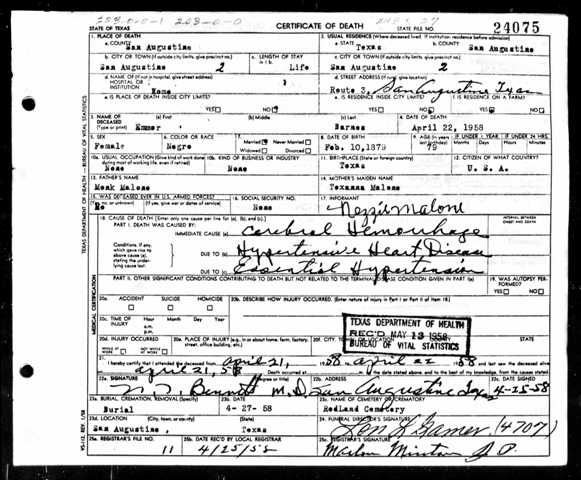 24075
STATE OF TEXAS CERTIFICATE OF DEATH
1. PLACE OF DEATH
a. COUNTY San Augustine
2. USUAL RESIDENCE (Where deceased lived. If institution: residence before admission)
a. STATE Texas b. COUNTY San Augustine
b. CITY OR TOWN (If outside city limits, give precinct no.) San Augustine 2
c. LENGTH OF STAY in 1 b. Life
c. CITY OR TOWN (If outside city limits, give precinct no.) San Augustine 2
d. NAME OF (If not in hospital, give street address) HOSPITAL OR INSTITUTION Home
d. STREET ADDRESS (If rural, give location) Route 3, San Augustine Texas
e. IS PLACE OF DEATH INSIDE CITY LIMITS? YES NO
e. IS RESIDENCE INSIDE CITY LIMITS? YES NO
f. IS RESIDENCE ON A FARM? YES NO
3. NAME OF DECEASED (Type or print) (a) First Emmer (b) Middle (c) Last Barnes
4. DATE OF DEATH April 22, 1958
5. SEX Female
6. COLOR OR RACE Negro
7. Married Never Married Widowed Divorced
8. DATE OF BIRTH Feb. 10, 1879
9. AGE 79 IF UNDER 1 YEAR Months Days IF UNDER 24 HRS. Hours Minutes
10a. USUAL OCCUPATION (Give kind of work done during most of working life, even if retired) None
10b. KIND OF BUSINESS OR INDUSTRY None
11. BIRTHPLACE (State or foreign country) Texas
12. CITIZEN OF WHAT COUNTRY? U. S. A.
13. FATHER'S NAME Monk Malone
14. MOTHER'S MAIDEN NAME Texanna Malone
15. WAS DECEASED EVER IN U.S. ARMED FORCES? (Yes, no or unknown) (If yes, give war or dates of service) No
16. SOCIAL SECURITY NO. None
17. INFORMANT Nezzie Malone
18. CAUSE OF DEATH (Enter only one cause per line for (a), (b), and (c).)
INTERVAL BETWEEN ONSET AND DEATH
PART I. DEATH WAS CAUSED BY:
IMMEDIATE CAUSE (a) Cerebral Hemorrhage
Conditions, if any, which gave rise to above cause (a), stating the underlying cause last.
DUE TO (b) Hypertensive Heart Disease
DUE TO (c) Essential Hypertension
PART II. OTHER SIGNIFICANT CONDITIONS CONTRIBUTING TO DEATH BUT NOT RELATED TO THE TERMINAL DISEASE CONDITION GIVEN IN PART I (a)
19. WAS AUTOPSY PERFORMED? YES NO
20a. ACCIDENT SUICIDE HOMICIDE
20b. DESCRIBE HOW INJURY OCCURRED. (Enter nature of injury in Part I or Part II of item 18)
20c. TIME OF INJURY Hour a.m. p.m. Month Day Year
20d. INJURY OCCURRED WHILE AT WORK NOT WHILE AT WORK
20e. PLACE OF INJURY (e.g., in or about home, farm, factory, street, office building, etc.)
20f. CITY, TOWN COUNTY STATE
TEXAS DEPARTMENT OF HEALTH
REC'D MAY 13 1958
BUREAU OF VITAL STATISTICS
21. I hereby certify that I attended the deceased from April 21, 1958 April 22 1958 and last saw the deceased alive
April 21, 58 Death occurred
22a. SIGNATURE Bennett M.D.
22b. ADDRESS San Augustine Tex
22c. DATE SIGNED 4-25-58
23a. BURIAL, CREMATION, REMOVAL (Specify) Burial
23b. DATE 4-27-58
23c. NAME OF CEMETERY OR CREMATORY Redland Cemetery
23d. LOCATION (City, town, or county) (State) San Augustine, Texas
24. FUNERAL DIRECTOR'S SIGNATURE (4707)
25a. REGISTRAR'S FILE NO. 11
25b. DATE REC'D BY LOCAL REGISTRAR 4/25/58
25c. REGISTRAR'S SIGNATURE
TEXAS DEPARTMENT OF HEALTH — BUREAU OF VITAL STATISTICS
MEDICAL CERTIFICATION